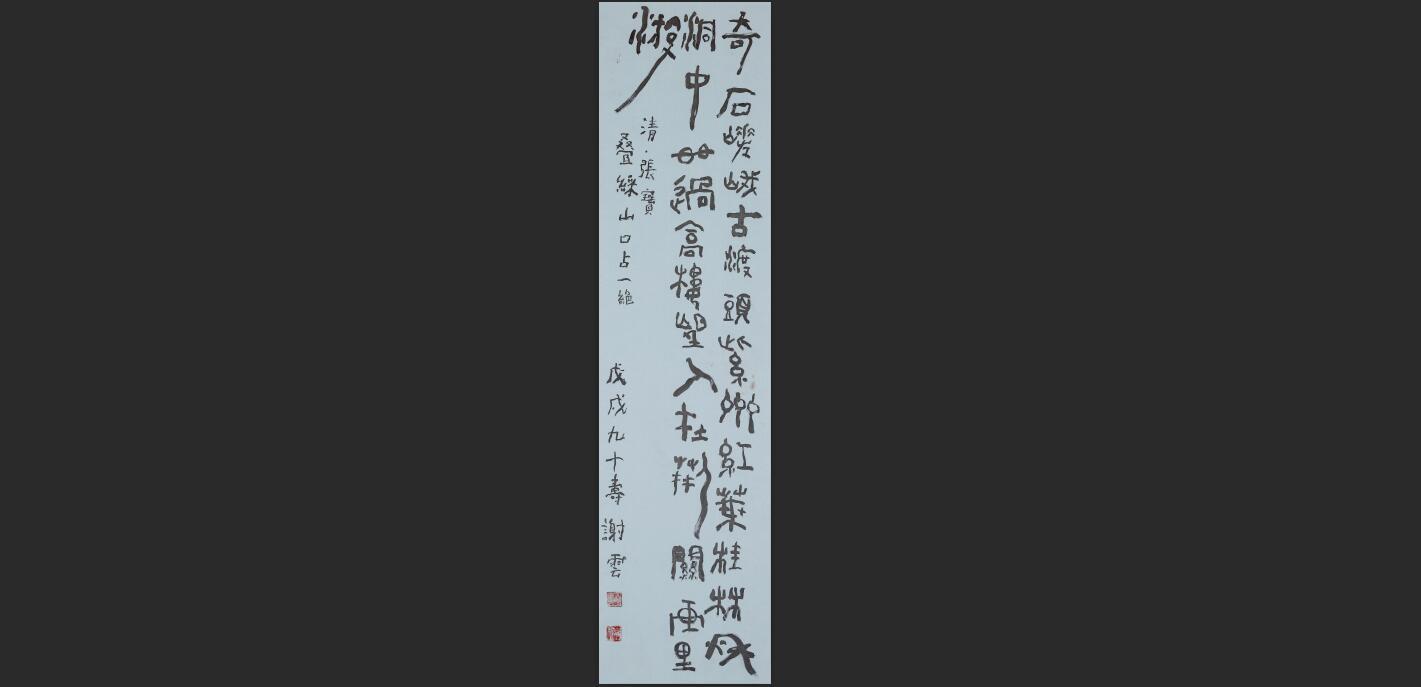 奇石嵯峨古渡頭紫紅葉桂林秋
洞中過高樓望人在荊關畫里
游
清·張寶
叠綵山口占一絕
戊戌九十壽謝雲